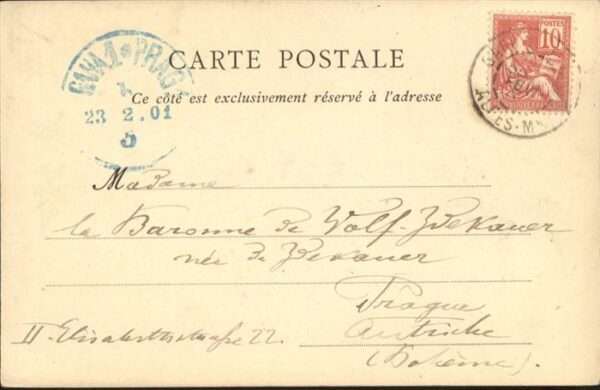 PRAHA 1 * PRAG 1
23 2.01
5
10
CARTE POSTALE
Ce côté est exclusivement réservé à l'adresse
ALPES-M
Madame
la Baronne de Wolf-Zdekauer
née de Zdekauer
Prague
II. Elisabethstraße 22. Autriche
(Bohème).